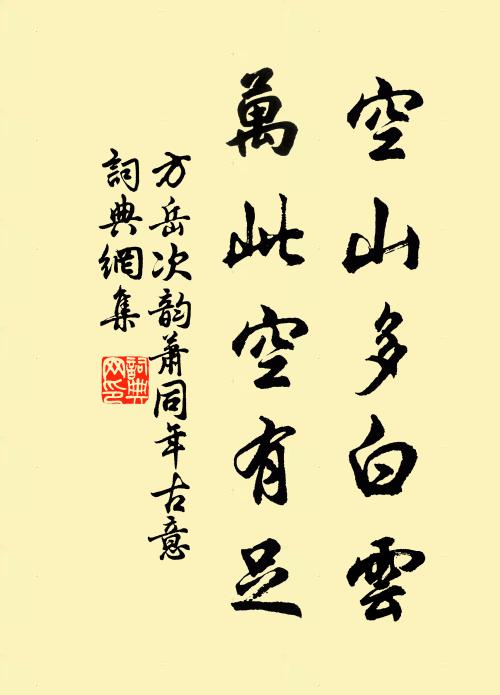 空山多白雲
萬此空有足
方岳次韵蕭同年古意
詞典網集
詞典
网印